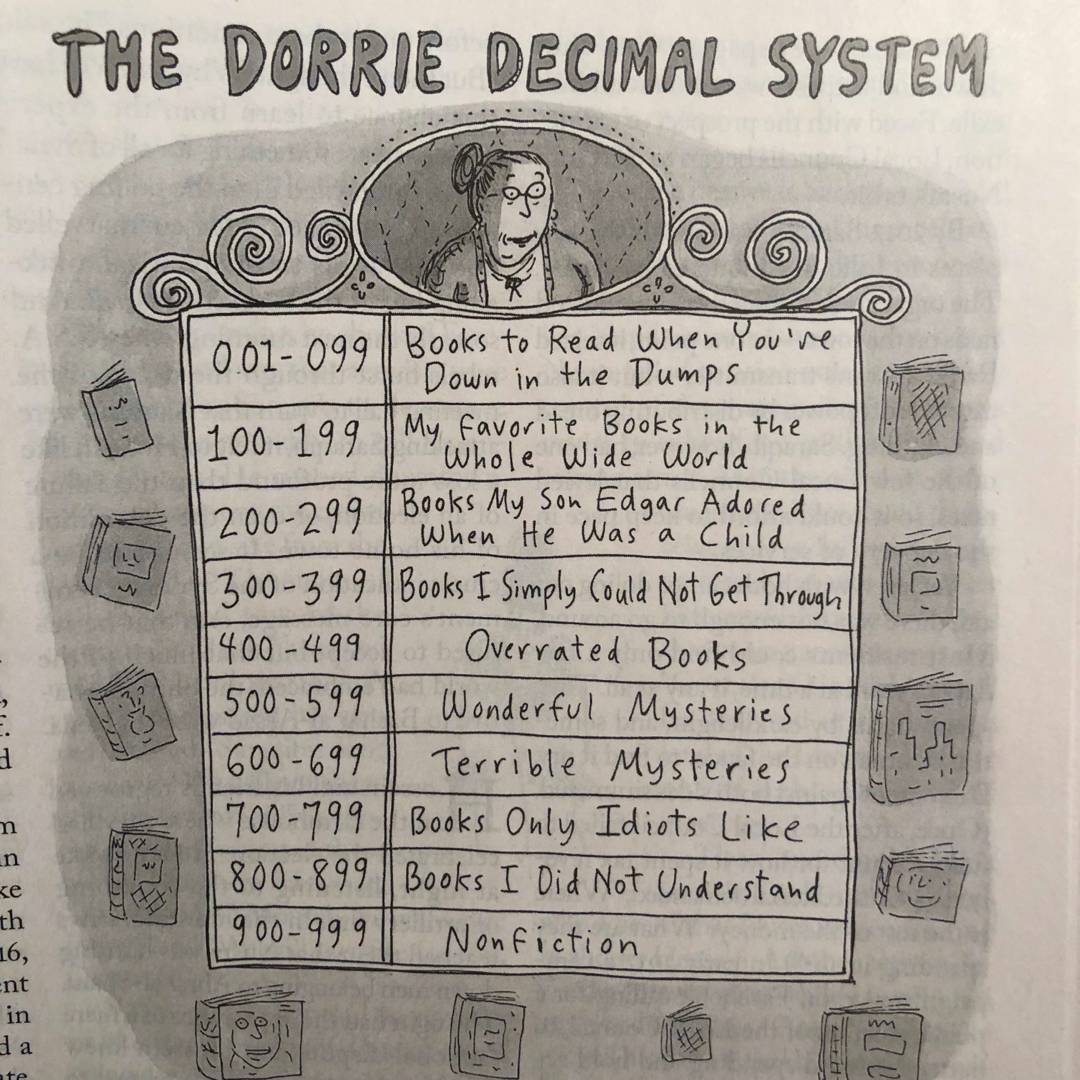 THE DORRIE DECIMAL SYSTEM
001-099
Books to Read When You've
Down in the Dumps
100-199
My Favorite Books in the
Whole Wide World
200-299
Books My Son Edgar Adored
When He Was a Child
300-399
Books I Simply Could Not Get Through
400-499
Overrated Books
500-599
Wonderful Mysteries
600-699
Terrible Mysteries
700-799
Books Only Idiots Like
800-899
Books I Did Not Understand
900-999
Nonfiction
16,
in
d a